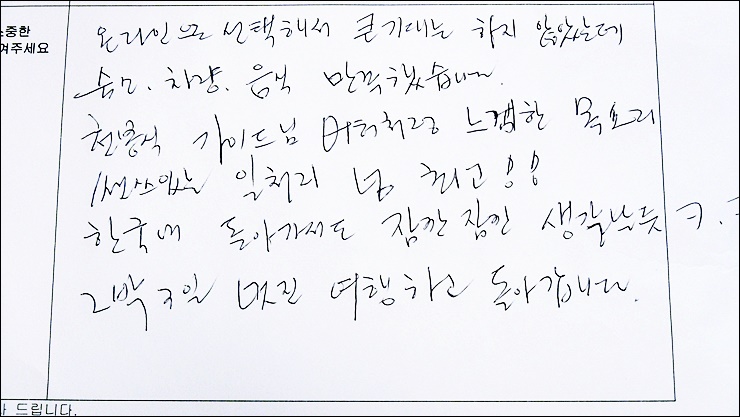 소중한
여주세요
온라인으로 선택해서 큰 기대는 하지 않았는데
숙소. 차량. 음식 만족했습니다.
가이드님 버터처럼 느끼한 목소리
센스있는 일처리 넘 최고!!
한국에 돌아가서도 잠깐잠깐 생각날듯 ㅋ.ㅋ
2박3일 멋진 여행하고 돌아갑니다.
드립니다.